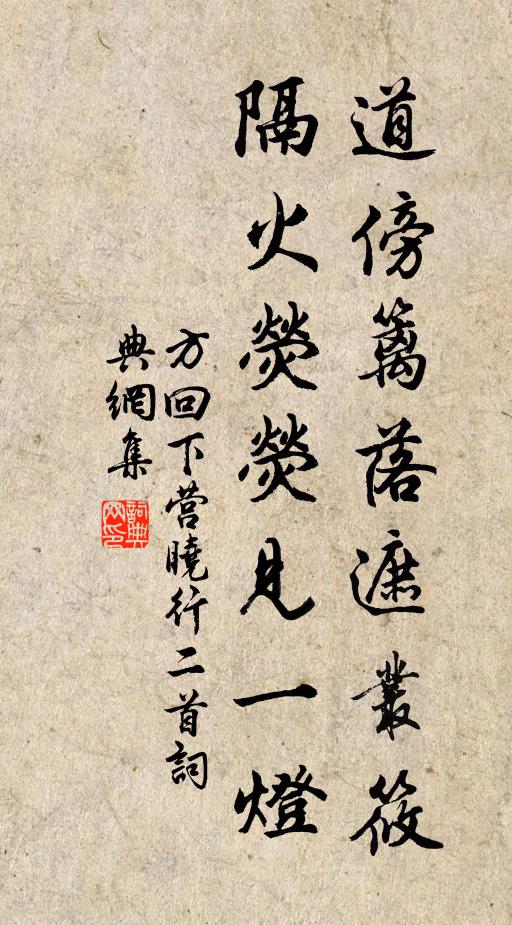 道傍籬落遮叢筱
隔火熒熒見一燈
方回下营曉行二首詞
典網集
詞典網印